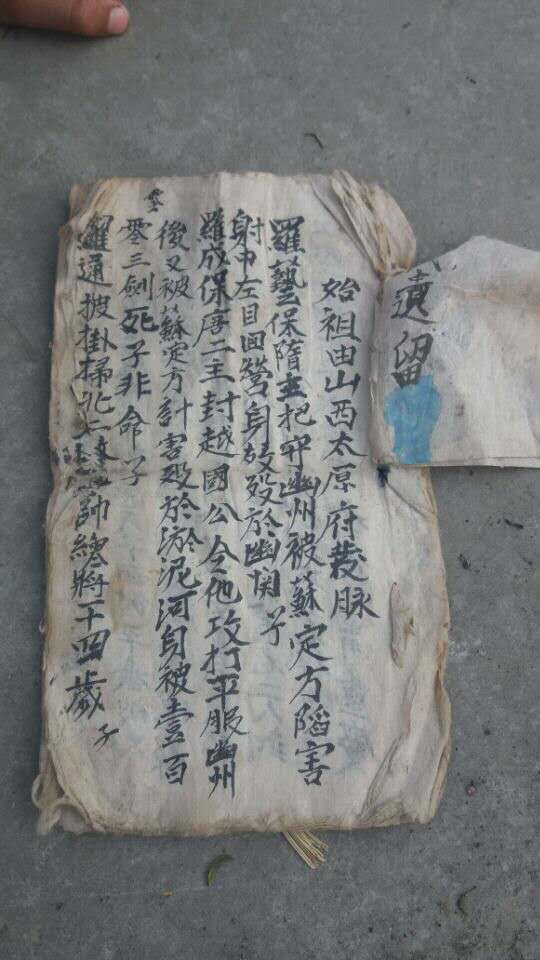 遺留
始祖由山西太原府發脉
羅藝保隋主把守幽州被蘇定方陷害
射中左目回營身故殁於幽関 子
羅成保唐二主封越國公令他攻打平服幽州
後又被蘇定方計害殁於淤泥河身被壹百
零三劍死于非命 子
羅通披掛掃北 帥總將十四歲 子